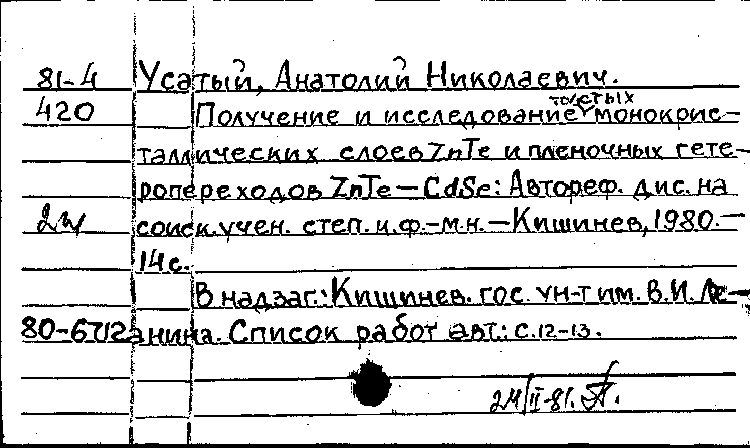 81-4 Усатый, Анатолий Николаевич.
420 Получение и исследование толстых монокрис-
таллических слоев ZnTe и пленочных гете-
ропереходов ZnTe—CdSe: Автореф. дис. на
соиск. учен. степ. к.ф.-м.н.—Кишинев, 1980.—
14 с.
В надзаг.: Кишинев. гос. ун-т им. В.И. Ле-
нина. Список работ авт.: с. 12-13.
24/II-81.